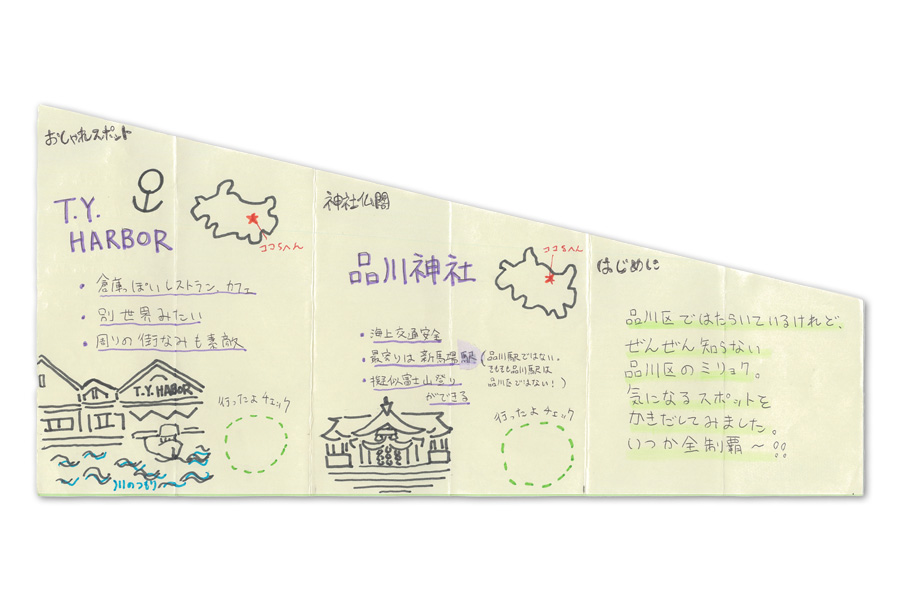 おしゃれスポット
T.Y.
HARBOR
ココらへん
・倉庫っぽいレストラン、カフェ
・別世界みたい
・周りの街なみも素敵
T.Y. HARBOR
行ったよチェック
川のつもり
神社仏閣
ココらへん
品川神社
・海上交通安全
・最寄りは新馬場駅(品川駅ではない。
そもそも品川駅は
品川区ではない!)
・擬似富士山登り
ができる
行ったよチェック
はじめに
品川区ではたらいているけれど、
ぜんぜん知らない
品川区のミリョク。
気になるスポットを
かきだしてみました。
いつか全制覇〜!!